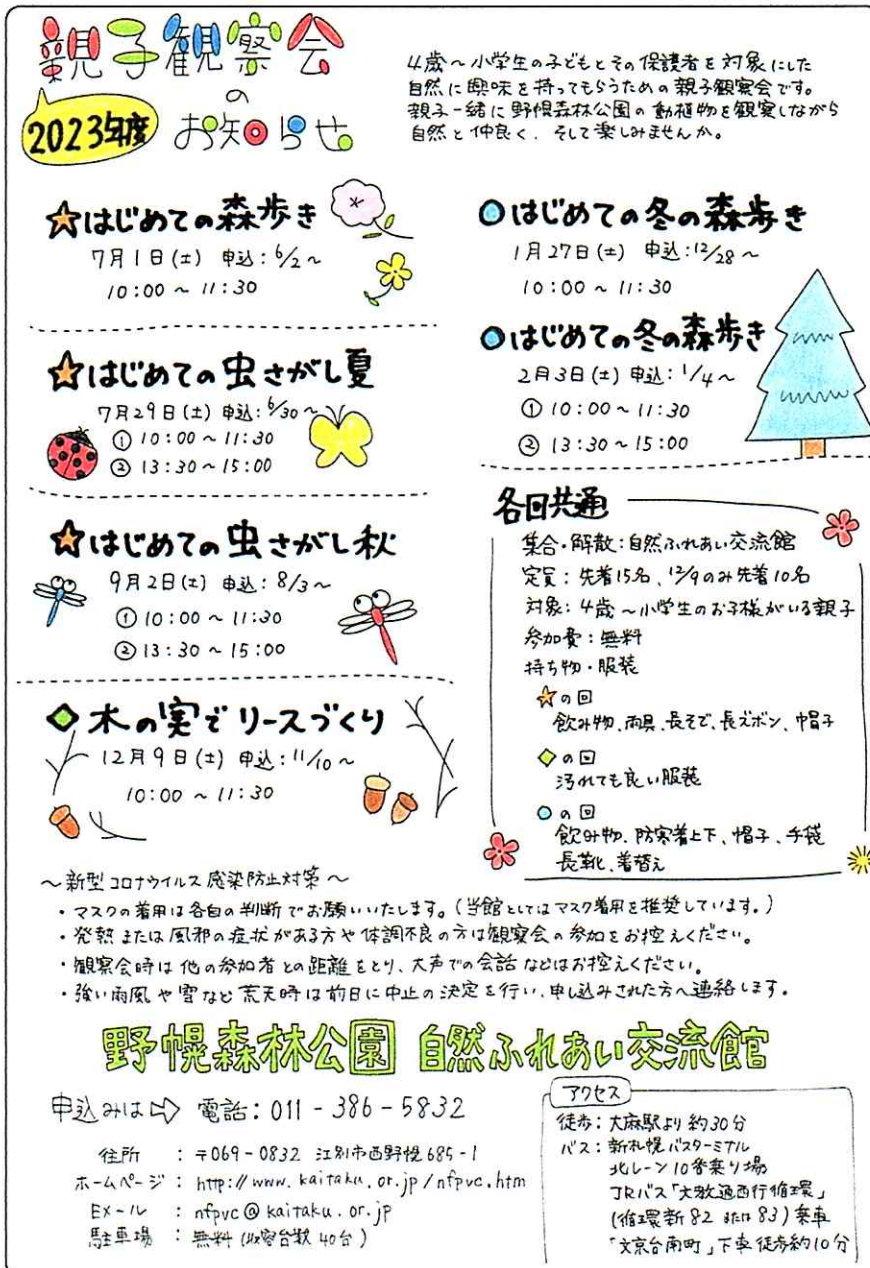 親子観察会
の
お知らせ
2023年度
4歳〜小学生の子どもとその保護者を対象にした
自然に興味を持ってもらうための親子観察会です。
親子一緒に野幌森林公園の動植物を観察しながら
自然と仲良く、そして楽しみませんか。
☆はじめての森歩き
7月1日(土) 申込:6/2〜
10:00 〜 11:30
☆はじめての虫さがし夏
7月29日(土) 申込:6/30〜
① 10:00〜11:30
② 13:30〜15:00
☆はじめての虫さがし秋
9月2日(土) 申込:8/3〜
① 10:00 〜 11:30
② 13:30 〜 15:00
◆木の実でリースづくり
12月9日(土) 申込:11/10〜
10:00 〜 11:30
○はじめての冬の森歩き
1月27日(土) 申込:12/28〜
10:00 〜 11:30
○はじめての冬の森歩き
2月3日(土) 申込:1/4〜
① 10:00〜11:30
② 13:30〜15:00
各回共通
集合・解散:自然ふれあい交流館
定員:先着15名、12/9のみ先着10名
対象:4歳〜小学生のお子様がいる親子
参加費:無料
持ち物・服装
☆の回
飲み物、雨具、長そで、長ズボン、帽子
◆の回
汚れても良い服装
○の回
飲み物、防寒着上下、帽子、手袋
長靴、着替え
〜新型コロナウイルス感染防止対策〜
・マスクの着用は各自の判断でお願いいたします。(当館としてはマスク着用を推奨しています。)
・発熱または風邪の症状がある方や体調不良の方は観察会の参加をお控えください。
・観察会時は他の参加者との距離をとり、大声での会話などはお控えください。
・強い雨風や雪など荒天時は前日に中止の決定を行い、申し込みされた方へ連絡します。
野幌森林公園 自然ふれあい交流館
申込みは⇨ 電話:011-386-5832
住所 :〒069-0832 江別市西野幌685-1
ホームページ:http://www.kaitaku.or.jp/nfpvc.htm
Eメール :nfpvc@kaitaku.or.jp
駐車場 :無料(収容台数 40台)
アクセス
徒歩:大麻駅より約30分
バス:新札幌バスターミナル
北レーン10番乗り場
JRバス「文教通西行循環」
(循環新82または83)乗車
「文京台南町」下車徒歩約10分